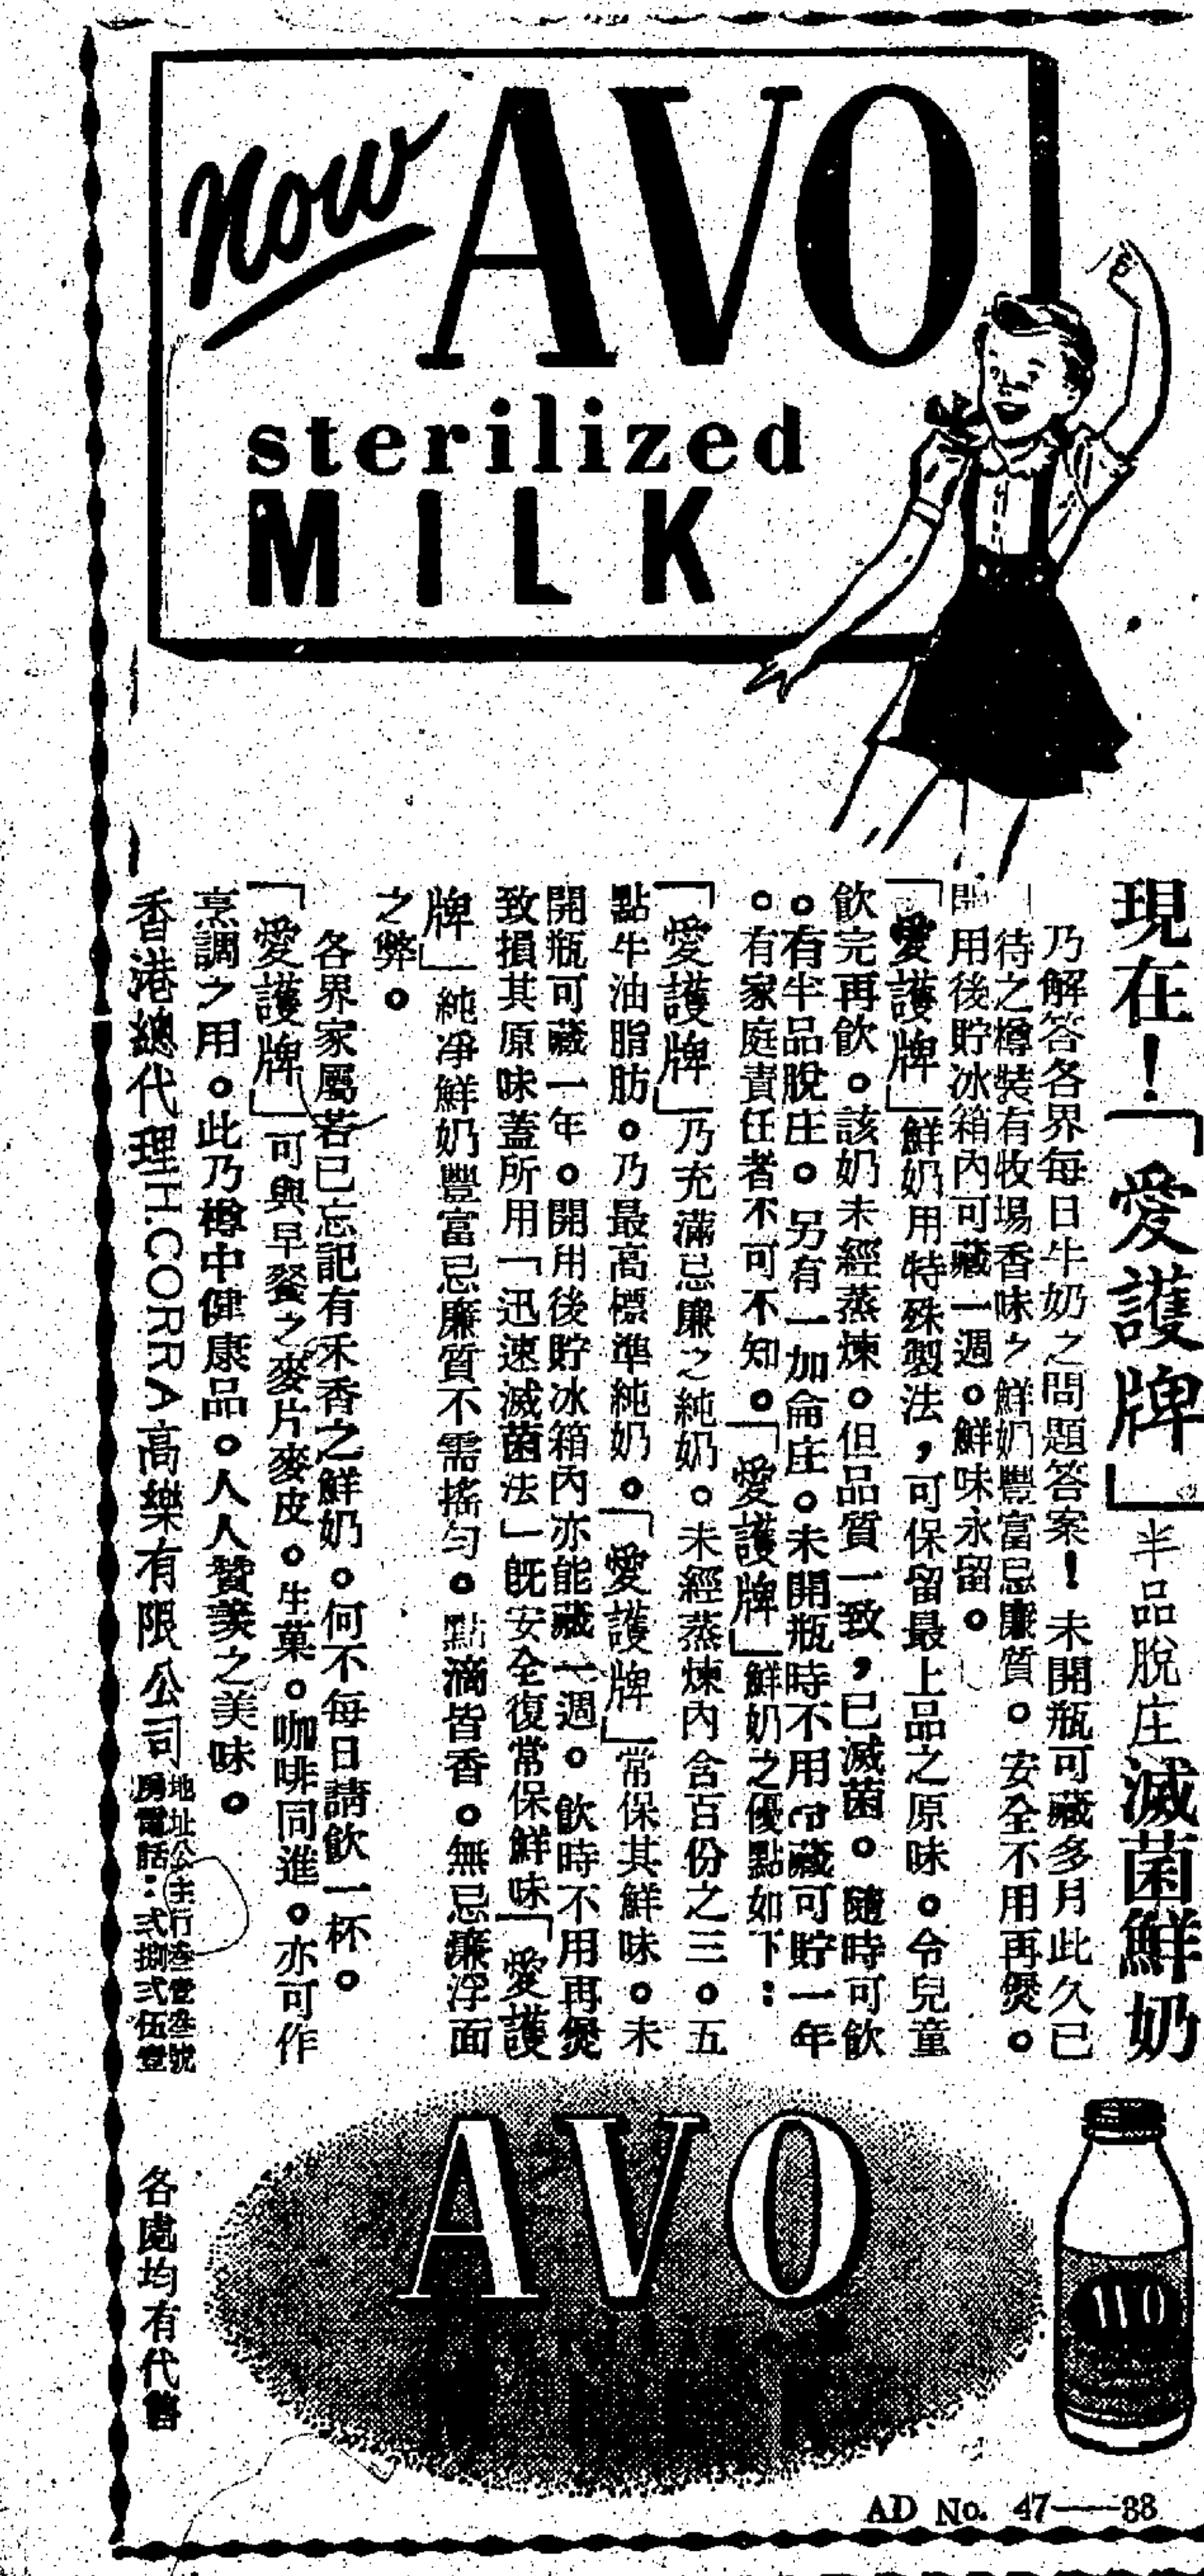 Now AVO
sterilized
MILK
現在！「愛護牌」半品脫庄滅菌鮮奶
乃解答各界每日牛奶之問題答案！未開瓶可藏多月此久已
待之樽裝有牧場香味之鮮奶豐富忌廉質。安全不用再煲。
開用後貯冰箱內可藏一週。鮮味永留。
「愛護牌」鮮奶用特殊製法，可保留最上品之原味。令兒童
飲完再飲。該奶未經蒸煉。但品質一致，已滅菌。隨時可飲
。有半品脫庄。另有一加侖庄。未開瓶時不用冷藏可貯一年
。有家庭責任者不可不知。「愛護牌」鮮奶之優點如下：
「愛護牌」乃充滿忌廉之純奶。未經蒸煉內含百份之三。五
點牛油脂肪。乃最高標準純奶。「愛護牌」常保其鮮味。未
開瓶可藏一年。開用後貯冰箱內亦能藏一週。飲時不用再煲
致損其原味蓋所用「迅速滅菌法」既安全復常保鮮味「愛護
牌」純净鮮奶豐富忌廉質不需搖勻。點滴皆香。無忌廉浮面
之弊。
各界家屬若已忘記有禾香之鮮奶。何不每日請飲一杯。
「愛護牌」可與早餐之麥片麥皮。生菓。咖啡同進。亦可作
烹調之用。此乃樽中健康品。人人贊羨之美味。
香港總代理H.CORRA高樂有限公司
地址公主行壹壹叁號
房電話：弍捌弍伍壹
各處均有代售
AVO
sterilized
MILK
AVO
AD No. 47——33